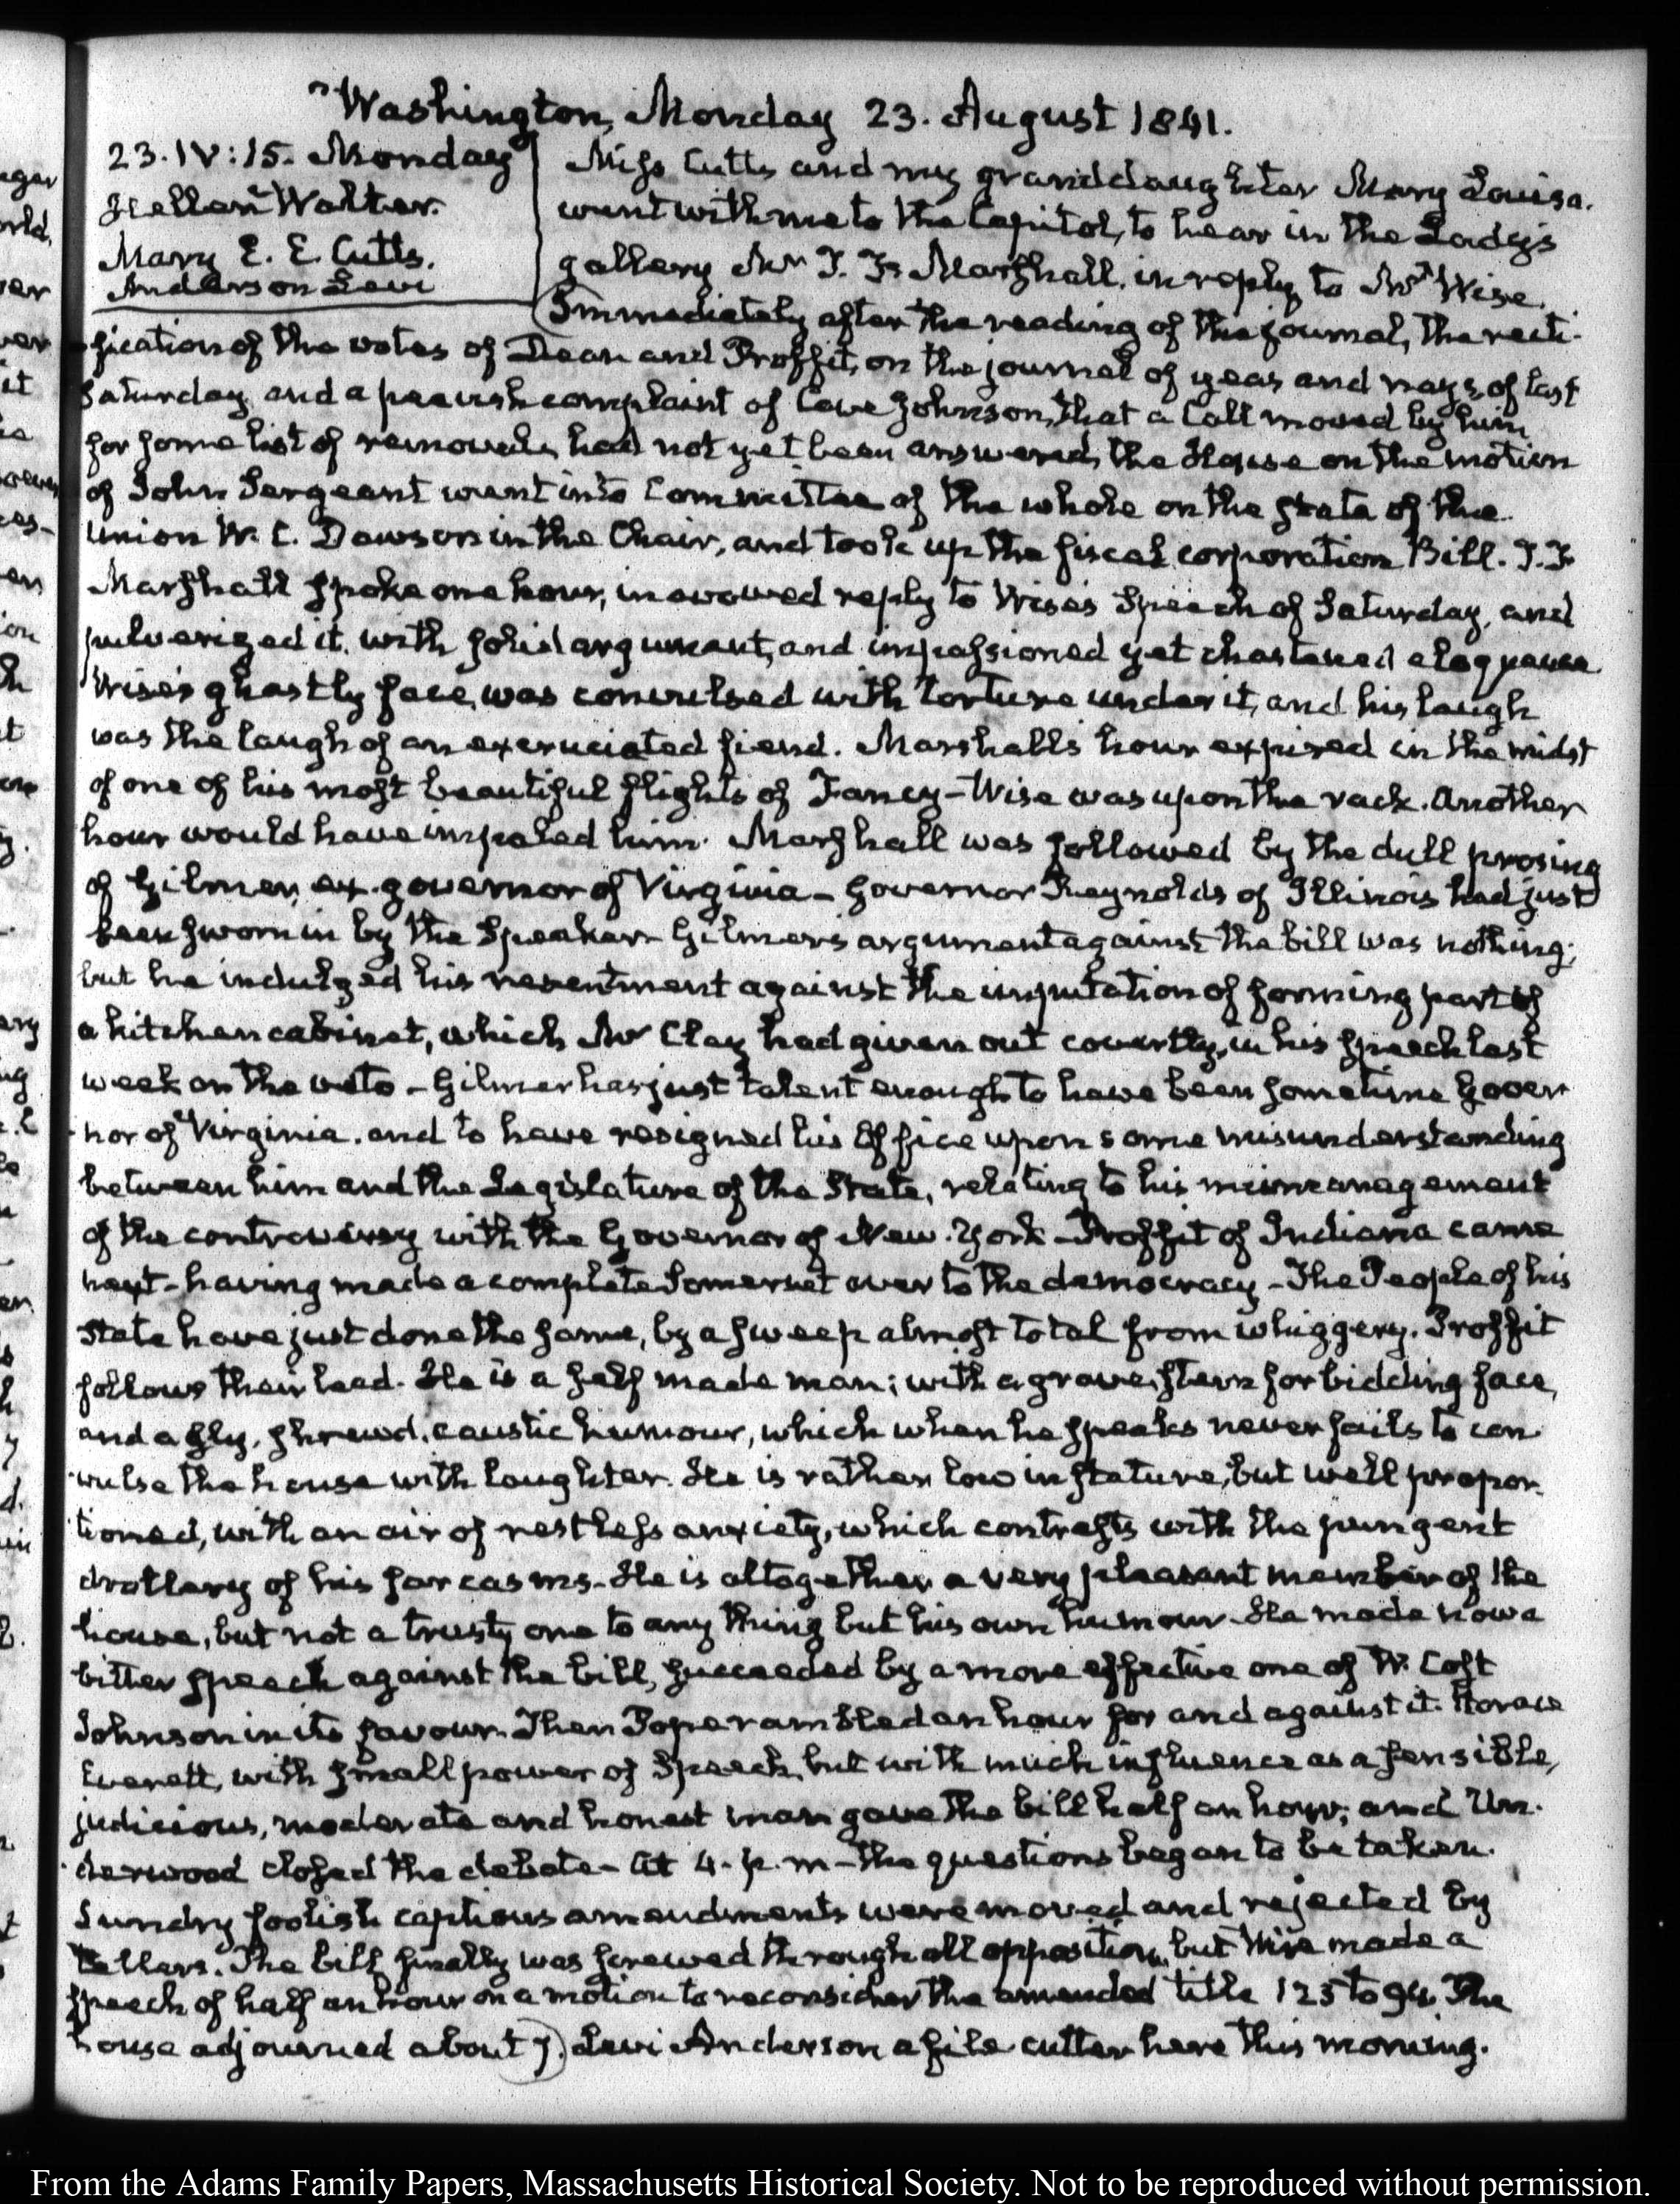 Washington, Monday 23. August 1841.
23. IV:15. Monday
Hellen Walter.
Mary E. E. Cutts.
Anderson Levi
Miss Cutts and my granddaughter Mary Louisa.
went with me to the Capitol, to hear in the Lady's
gallery Mr T. F. Marshall, in reply to Mr Wise.
Immediately after the reading of the journal, the recti-
fication of the votes of Dean and Proffit, on the journal of yeas and nays, of last
Saturday, and a peevish complaint of Cave Johnson, that a Call moved by him
for some list of removals, had not yet been answered, the House on the motion
of John Sergeant went into Committee of the whole on the state of the
Union W. C. Dawson in the Chair, and took up the fiscal corporation Bill. T. F.
Marshall spoke one hour, in avowed reply to Wise's Speech of Saturday, and
pulverized it, with solid argument, and impassioned yet chastened eloquence
Wise's ghastly face, was convulsed with torture under it, and his laugh
was the laugh of an excruciated fiend. Marshall's hour expired in the midst
of one of his most beautiful flights of Fancy – Wise was upon the rack. Another
hour would have impaled him. Marshall was followed by the dull prosing
of Gilmer, ex-governor of Virginia – Governor Reynolds of Illinois had just
been sworn in by the Speaker – Gilmer's argument against the bill was nothing;
but he indulged his resentment against the imputation of forming part of
a kitchen cabinet, which Mr Clay had given out covertly, in his speech last
week on the veto – Gilmer has just talent enough to have been sometime Gover-
nor of Virginia, and to have resigned his Office upon some misunderstanding
between him and the Legislature of the State, relating to his mismanagement
of the controversy with the Governor of New-York – Proffit of Indiana came
next – having made a complete Somerset over to the democracy – The People of his
State have just done the same, by a sweep almost total from whiggery. Proffit
follows their lead. He is a self made man; with a grave, stern forbidding face,
and a sly, shrewd, caustic humour, which when he speaks never fails to con-
vulse the house with laughter. He is rather low in stature, but well propor-
tioned, with an air of restless anxiety, which contrasts with the pungent
drollery of his sarcasms – He is altogether a very pleasant member of the
house, but not a trusty one to any thing but his own humour – He made now a
bitter speech against the bill, succeeded by a more effective one of W. Cost
Johnson in its favour. Then Pope rambled an hour for and against it. Horace
Everett, with small power of Speech, but with much influence as a sensible,
judicious, moderate and honest man gave the bill half an hour; and Un-
derwood closed the debate – At 4. p.m – the questions began to be taken.
Sundry foolish captious amendments were moved and rejected by
tellers. The bill finally was screwed through all opposition, but Wise made a
speech of half an hour on a motion to reconsider the amended title 125 to 94. The
house adjourned about 7.) Levi Anderson a file cutter here this morning.
From the Adams Family Papers, Massachusetts Historical Society. Not to be reproduced without permission.